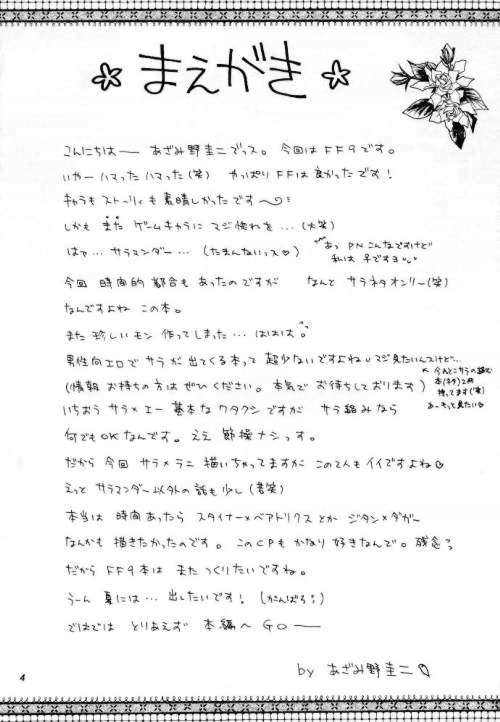 まえがき
こんにちはー あざみ野圭二でっス。今回はFF9です。
いやーハマったハマった(笑) やっぱりFFは良かったです!
キャラもストーリィも素晴しかったですー
しかも また ゲームキャラに マジ惚れを…(大笑)
はァ… サラマンダー…(たまんないっス♡)
あっ PN こんなですけど
私は 子ですヨ
今回 時間的都合もあったのですが なんと サラネタオンリー(笑)
なんですよね この本。
また 珍しいモン 作ってしまった… ははは。
男性向エロで サラが 出てくる本って 超少ないですよね マジ見たいんスけど…
(情報 お持ちの方は ぜひください。本気で お待ちしております)
今んとこサラの絡む
本(ネタ)2冊
持ってます(笑)
あーもっと見たい
いちおう サラ×エー 基本な ワタクシ ですが サラ絡みなら
何でもOKなんです。ええ 節操ナシっす。
だから 今回 サラ×ラニ 描いちゃってますが この2人も イイですよね♡
えっと サラマンダー以外の話も少し(苦笑)
本当は 時間あったら スタイナー×ベアトリクス とか ジタン×ダガー
なんかも 描きたかったのです。このCPも かなり 好きなんで。残念
だから FF9本は また つくりたいですね。
うーん 夏には… 出したいです!(がんばろ)
ではでは とりあえず 本編へ GOー
by あざみ野圭二
4